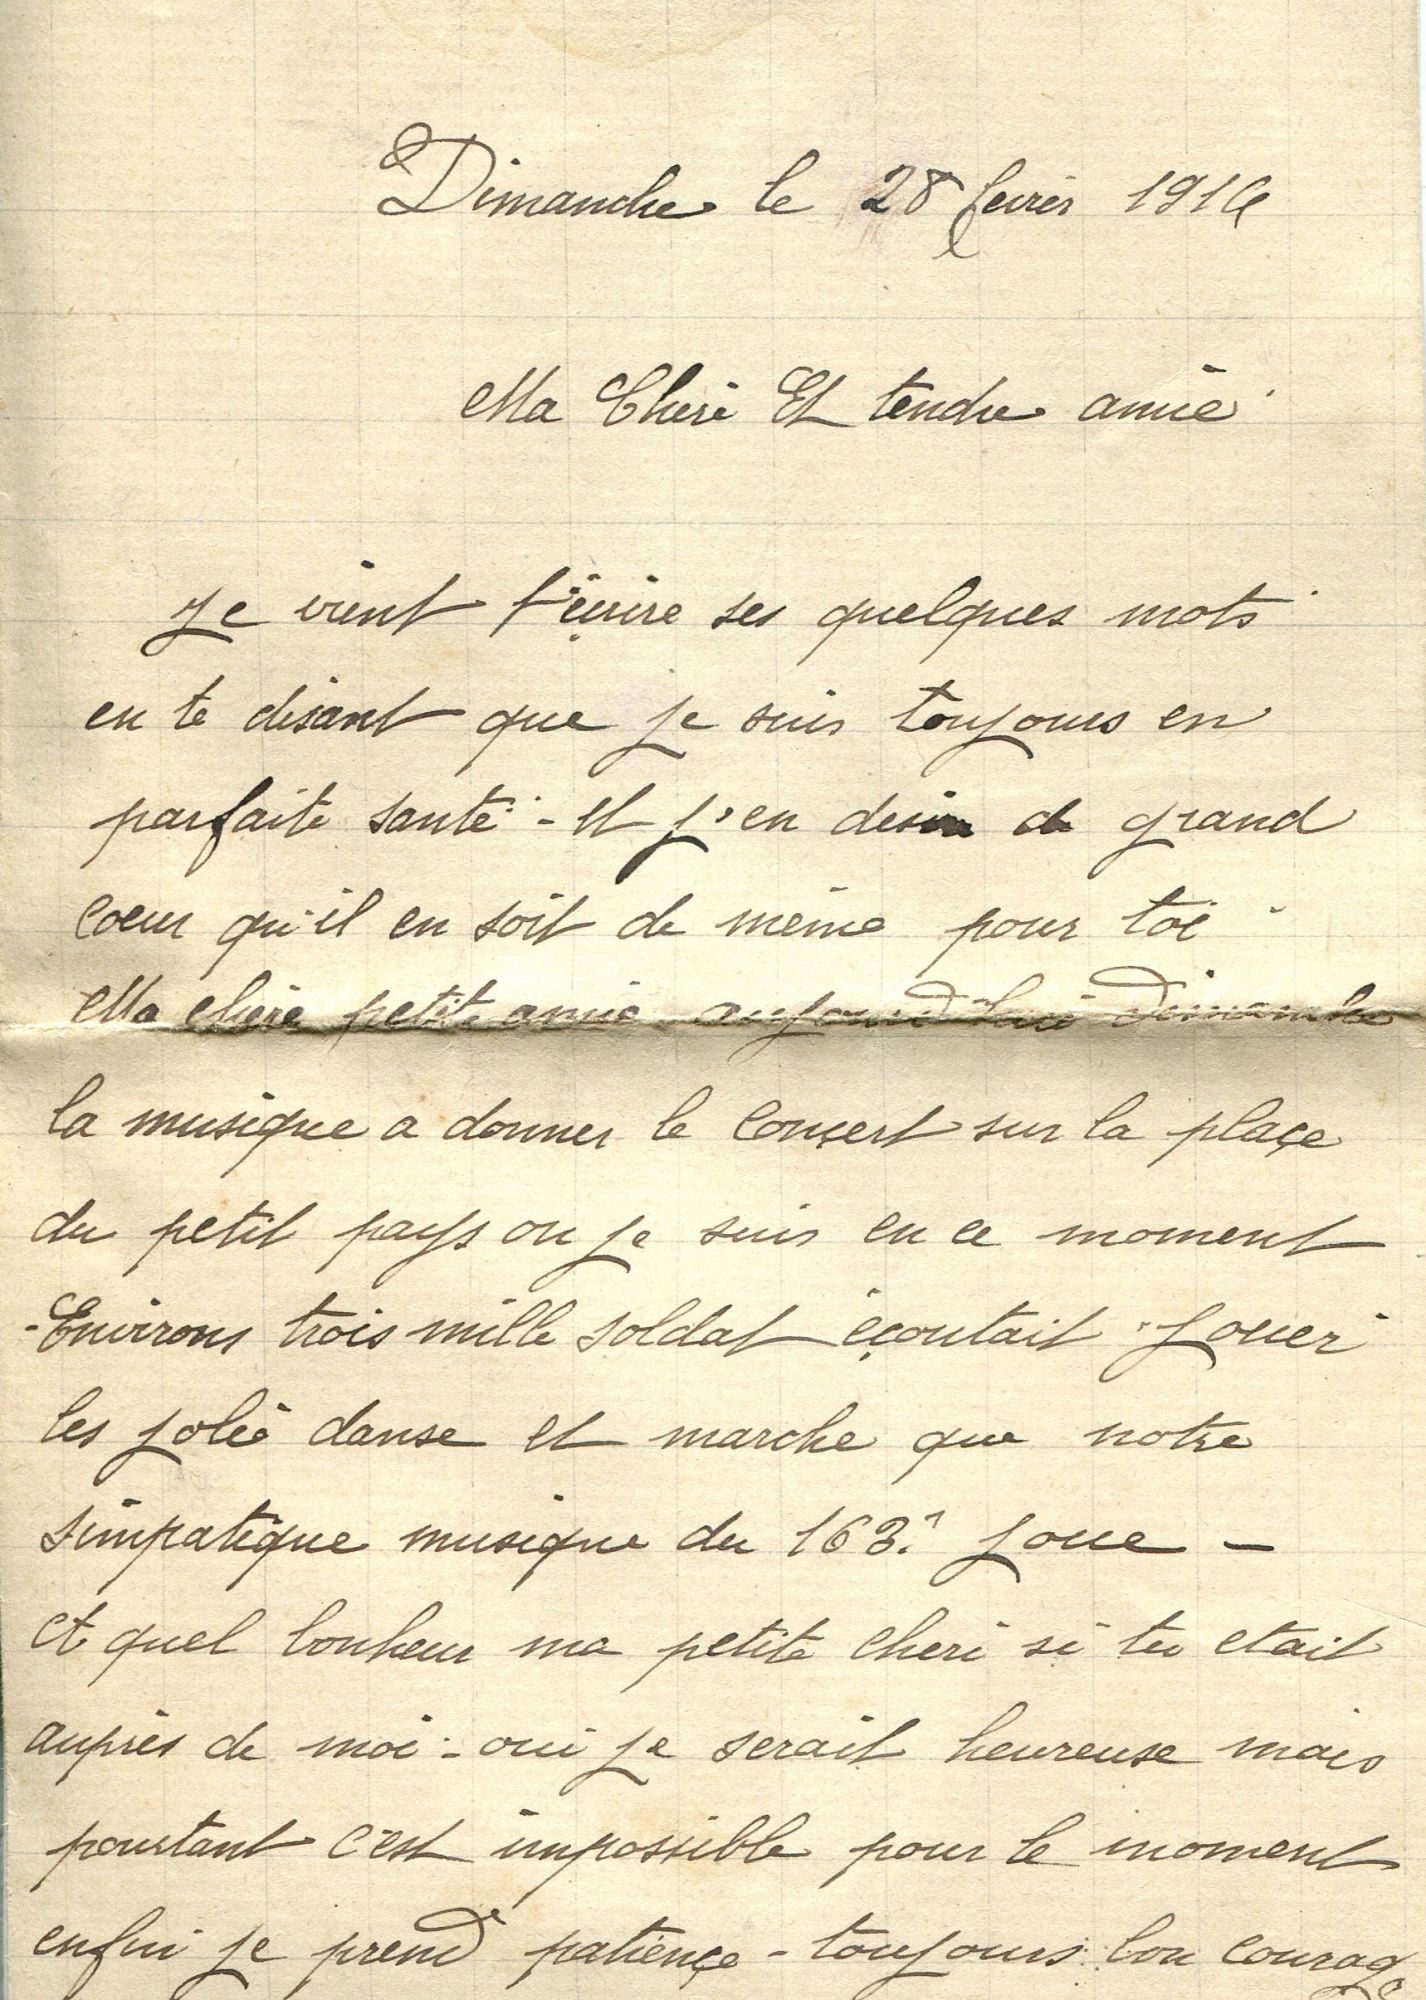 Dimanche le 28 fevrier 1916
Ma Cheri Et tendre amie
Je vient t'écrire ses quelques mots
en te disant que je suis toujours en
parfaite santé - et j'en desir de grand
coeur qu'il en soit de même pour toi
Ma chère petite amie aujourd'hui Dimanche
la musique a donner le conçert sur la plaçe
du petit pays ou je suis en ce moment
- Environs trois mille soldat éçoutait jouer
les jolie danse et marche que notre
simpatique musique du 163. joue -
et quel bonheur ma petite cheri si tu etait
auprès de moi - oui je serait heureuse mais
pourtant c'est impossible pour le moment
enfin je prend patiençe - toujours bon courage